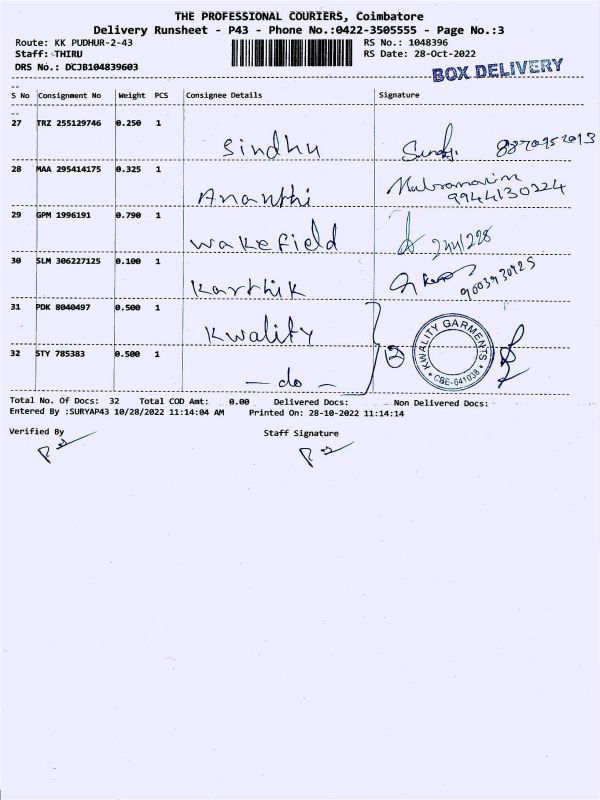 THE PROFESSIONAL COURIERS, Coimbatore
Delivery Runsheet - P43 - Phone No.:0422-3505555 - Page No.:3
Route: KK PUDHUR-2-43 RS No.: 1048396
Staff: THIRU RS Date: 28-Oct-2022
DRS No.: DCJB104839603 BOX DELIVERY
S No Consignment No Weight PCS Consignee Details Signature
27 TRZ 255129746 0.250 1 Sindhu 8870952013
28 MAA 295414175 0.325 1 Ananthi 9944130224
29 GPM 1996191 0.790 1 Wakefield
30 SLM 306227125 0.100 1 Karthik
31 PDK 8040497 0.500 1 Kwality
32 STY 785383 0.500 1 - do - 2 KWALITY GARMENTS * CBE-641038 *
Total No. Of Docs: 32 Total COD Amt: 0.00 Delivered Docs: Non Delivered Docs:
Entered By :SURYAP43 10/28/2022 11:14:04 AM Printed On: 28-10-2022 11:14:14
Verified By Staff Signature